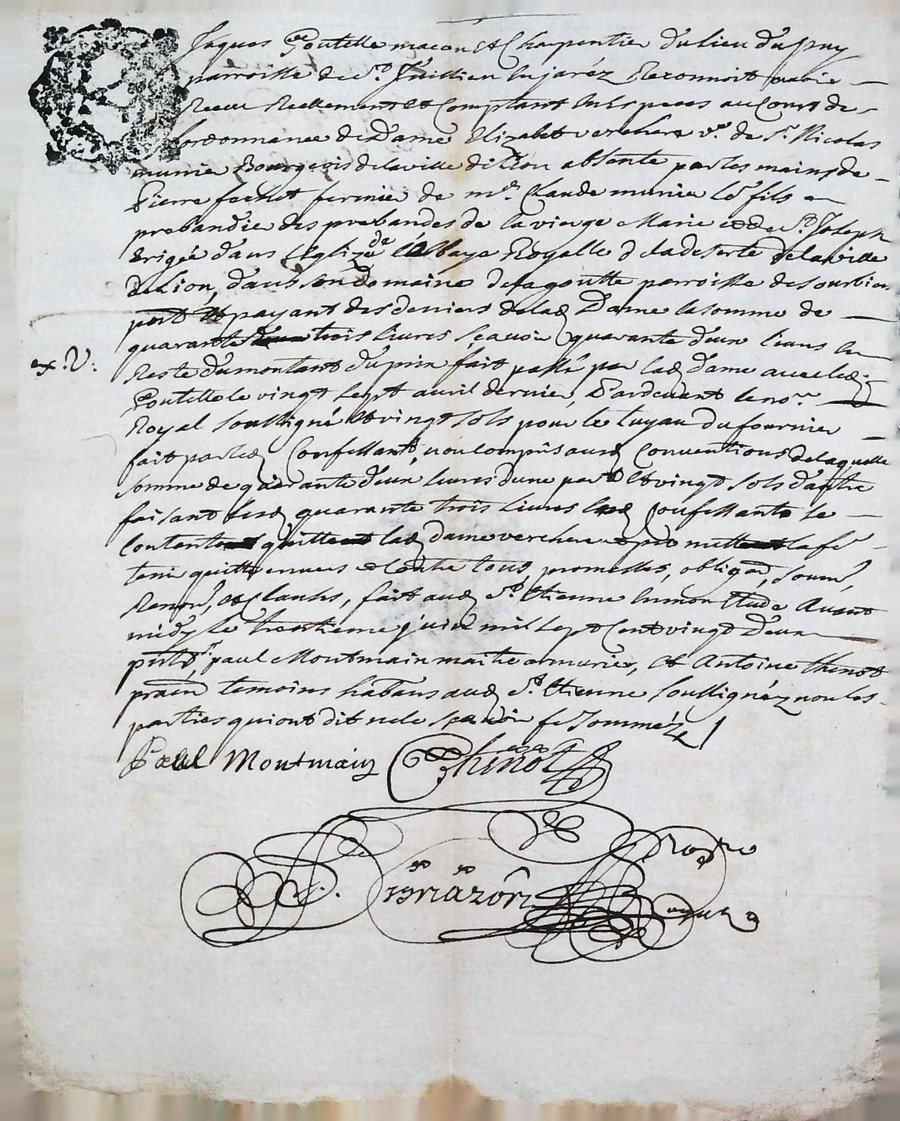 Jaques Poutelle macon et Charpentier du lieu du puy
parroisse de St Juillien en jaréz Reconnoit avoir
Receu Reellement et Comptant en Especes au Cours de
lordonnance de Dame Elizabet verchere ve de Sr Nicolas
munier Bourgeois de la ville de Lion absente par les mains de
Pierre fermier de mre Claude munier le fils
probandié des probandes de la vierge Marie et de St Joseph
Erigée dans L'Eglize de Labbaye Royalle de la deserte de la ville
de Lion, dans son domaine de la goutte parroisse de Sorbier
pnt et payant des deniers de lad Dame la somme de
quarante trois livres scavoir quarante deux livres en
ex. V.
Reste du montant du prix fait passé par lad dame avec led
Poutelle le vingt sept avril dernier, Pardevant le nore
Royal soussigné et vingt sols pour le tuyau du fournier
fait par led Confessant, non compris aud Conventions de laquelle
somme de quarante deux livres dune part et vingt sols d'autre
faisant lesd quarante trois livres led Confessant se
Contente quitte lad dame verchere et promet la fe
tenir quitte envers et Contre tous, promesses, obligaõ, soum,
Renon, et Clauses, fait aud St Etienne en mon Etude Avant
midy le trentieme juin mil sept Cent vingt deux
pnts Sr paul Montmain maitre armurier, et Antoine thenot
praen temoins habitans aud St Etienne soussignéz non les
parties qui ont dit ne le scavoir de ce Sommées
Paul Montmain Thenot